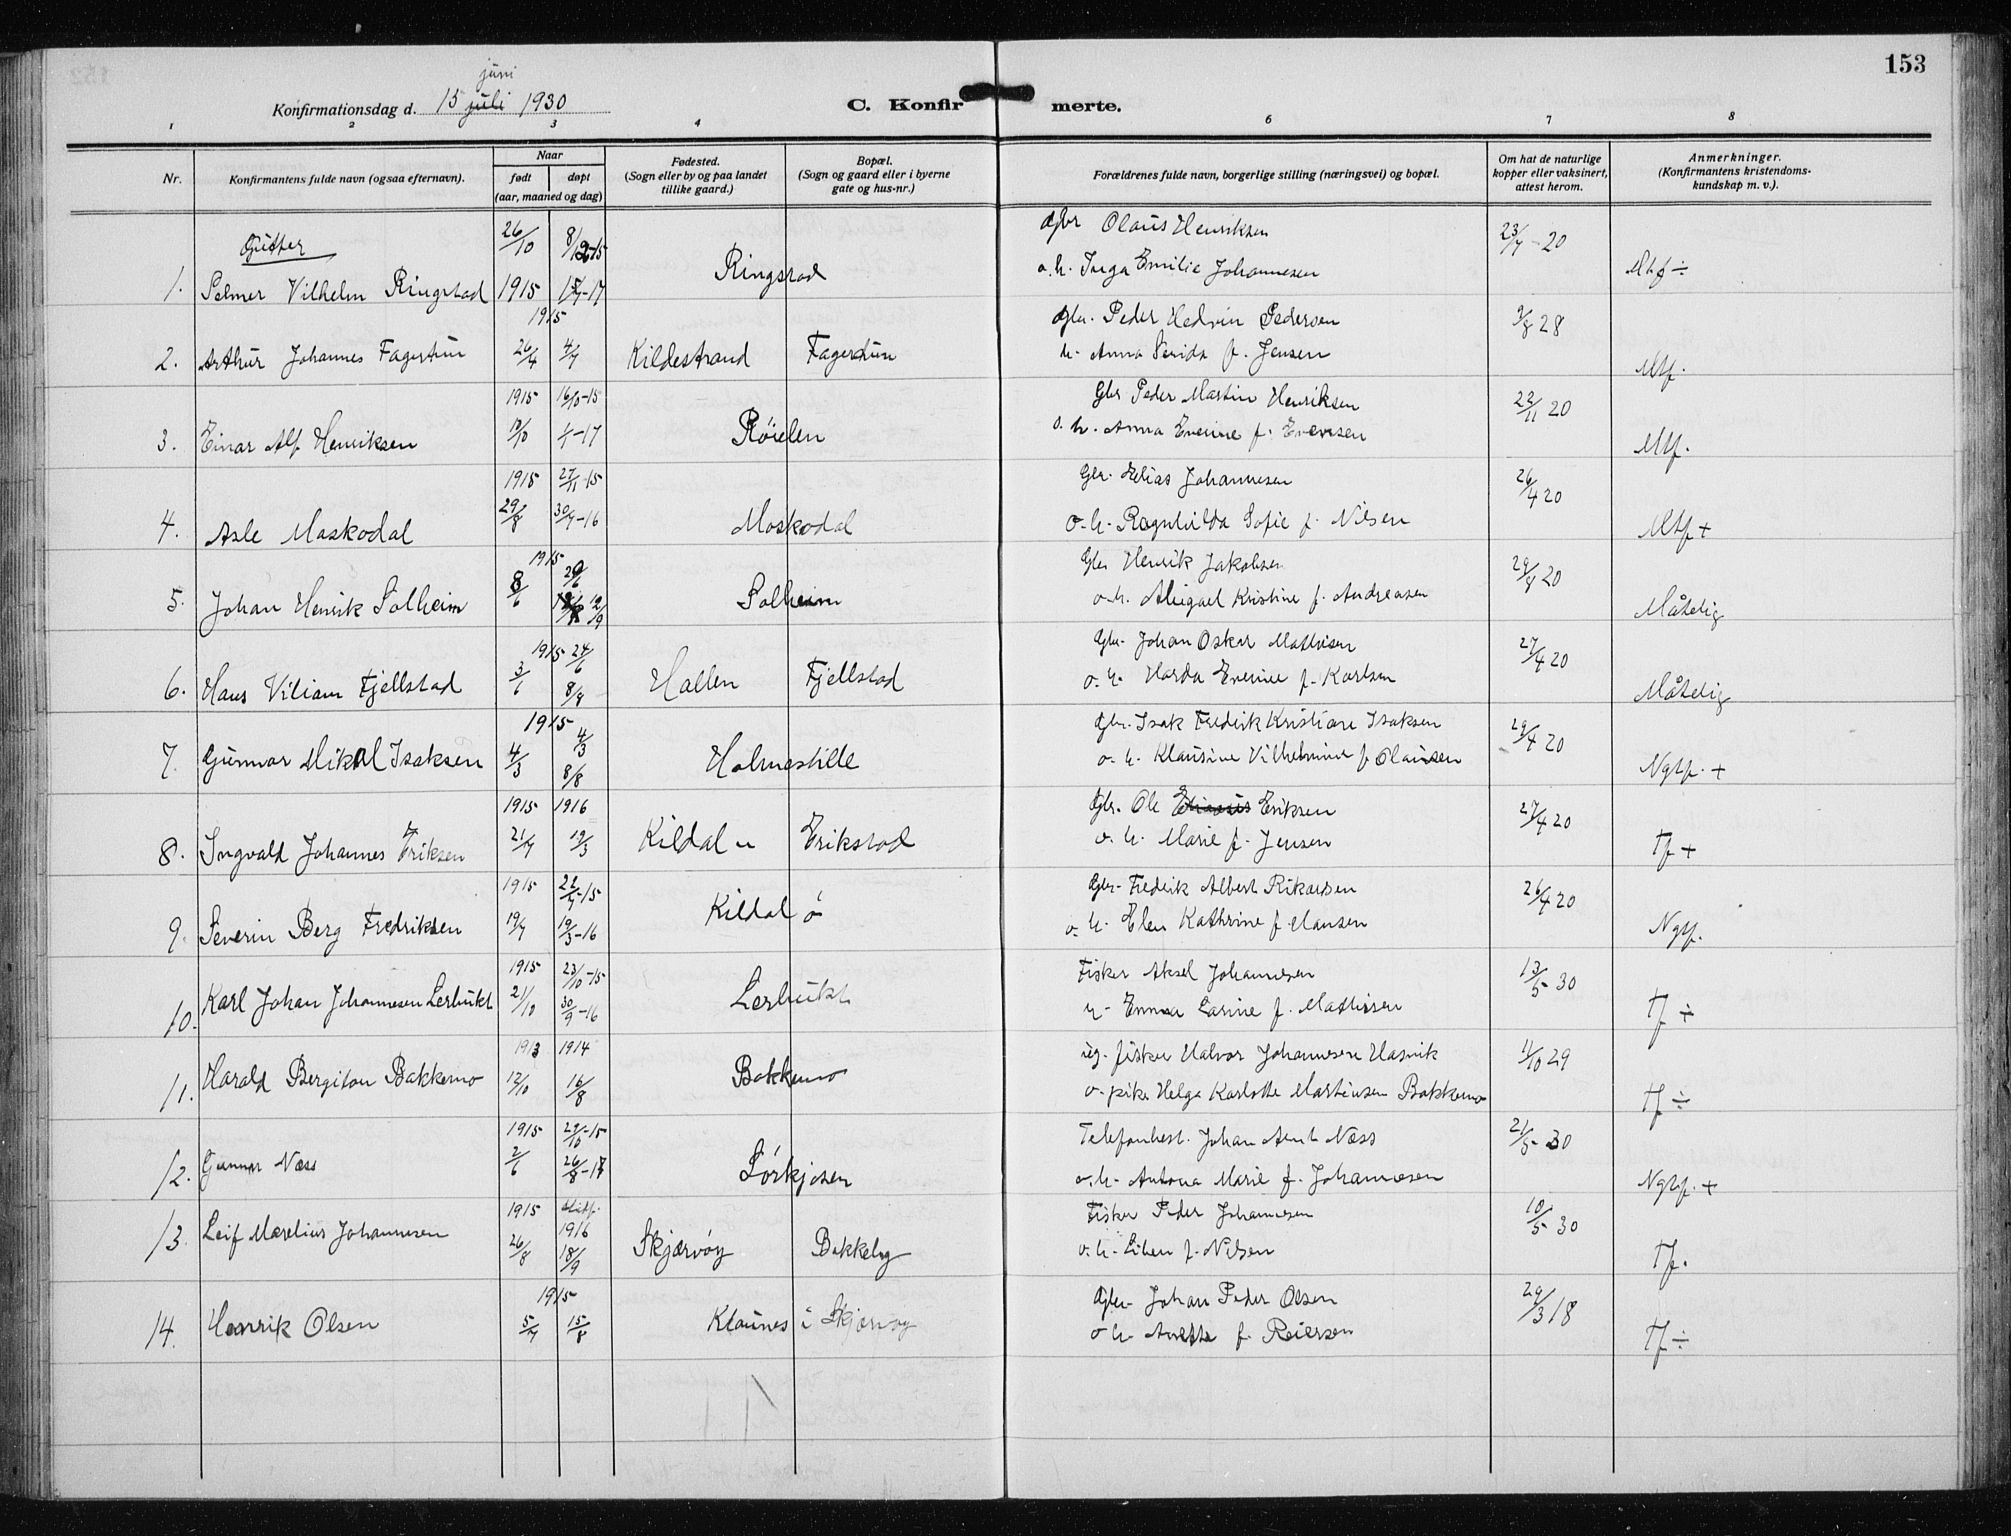 153
juni
Konfirmationsdag d. 15 juli 1930
C. Konfirmerte.
1 2 3 4 6 7 8
Nr.
Konfirmantens fulde navn (ogsaa efternavn).
Naar
født
døpt
(aar, maaned og dag)
Fødested.
(Sogn eller by og paa landet
tillike gaard.)
Bopæl.
(Sogn og gaard eller i byerne
gate og hus-nr.)
Forældrenes fulde navn, borgerlige stilling (næringsvei) og bopæl.
Om hat de naturlige
kopper eller vaksinert,
attest herom.
Anmerkninger.
(Konfirmantens kristendoms-
kundskap m. v.).
Gutter
26/10 8/12-15 Gbr Olaus Henriksen 23/7-20
1. Selmer Vilhelm Ringstad 1915 Ringstad o. h. Inga Emilie Johannesen Mtf ÷
1915 Gbr. Peder Hedvin Pedersen 9/8 28
2. Arthur Johannes Fagertun 26/4 4/7 Kildestrand Fagertun h. Anna f. Jensen Mtf.
1915 16/10-15 Gbr Peder Martin Henriksen 22/11 20
3. Einar Alf Henriksen 10/10 -17 Röielen o. h. Anna Everine f. Evensen Mtf.
1915 27/11-15 Gbr. Elias Johannesen 26/4 20
4. Asle Moskodal 29/8 30/7-16 Moskodal o. h. Ragnhilda Sofie f. Nilsen Mtf +
1915 29/6 Gbr Henrik Jakobsen 29/4 20
5. Johan Henrik Solheim 8/6 12/9 Solheim o. h. Abigael Kristine f. Andreasen Måtelig
1915 24/6 Gbr. Johan Oskar Mathisen 27/4 20
6. Hans Viliam Fjellstad 3/6 8/8 Hallen Fjellstad o. h. Harda Everine f. Karlsen Måtelig
1915 4/3 Gbr. Isak Fredrik Kristian Isaksen 29/4 20
7. Gunnar Mikal Isaksen 4/3 8/8 Holmestille o. h. Klausine Vilhelmine f. Olausen Ngtf. +
1915 1916 Gbr. Ole Eriksen 27/4 20
8. Ingvald Johannes Eriksen 21/7 19/3 Kildal n Erikstad o. h. Marie f. Jensen Tf +
1915 22/7-15 Gbr. Fredrik Albert Rikarsen 26/4 20
9. Severin Berg Fredriksen 19/7 19/3-16 Kildal ö o. h. Elen Kathrine f. Hansen Ngtf.
1915 23/10-15 Fisker Aksel Johannesen 13/5 30
10. Karl Johan Johannesen Lerbukt 21/10 30/9-16 Lerbukt h. Emma Larine f. Mathisen Tf ÷
1913 1914 ug. fisker Halvor Johannesen Hasvik 11/10 29
11. Harald Bergiton Bakkemo 12/10 16/8 Bakkemo o. pike Helga Karlotte Martinsen Bakkemo Tf ÷
1915 29/10-15 Telefonbest. Johan Arnt Næss 21/5 30
12. Gunnar Næss 2/6 26/8-17 Sörkjosen o. h. Antona Marie f. Johannesen Ngtf. +
1915 1916 Fisker Peder Johannesen 10/5 30
13. Leif Marelius Johannesen 26/8 18/9 Skjærvöy Bakkeby o. h. f. Nilsen Tf.
1915 Gbr. Johan Peder Olsen 29/3 18
14. Henrik Olsen 5/7 15/8 Klaunes i Skjærvöy o. h. Anetta f. Reiersen Tf ÷